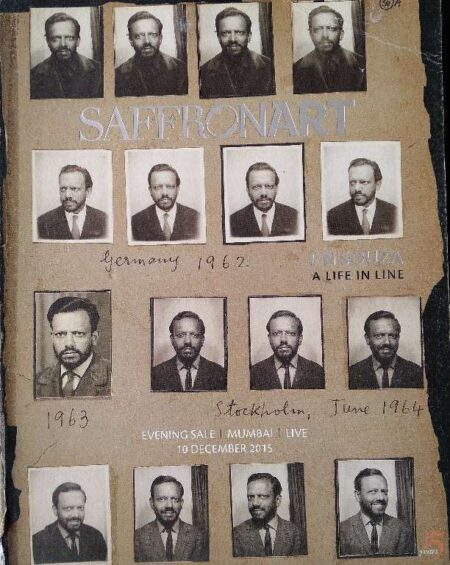 SAFFRONART
Germany 1962
F N SOUZA
A LIFE IN LINE
1963
Stockholm, June 1964
EVENING SALE | MUMBAI | LIVE
10 DECEMBER 2015
15
years